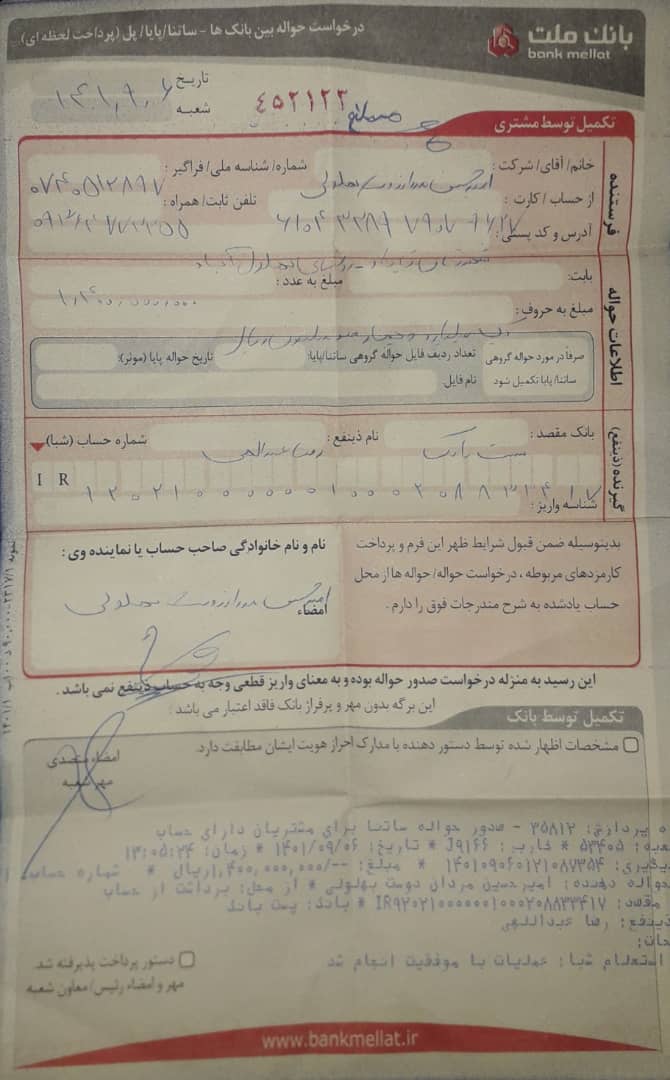 درخواست حواله بین بانک ها - ساتنا/پایا/ پل (پرداخت لحظه ای)
بانک ملت
bank mellat
تاریخ ۱۴۰۱,۹,۶
شعبه
۴۵۲۱۲۳
تکمیل توسط مشتری
فرستنده
خانم/ آقای/ شرکت: امیرحسین مردان دوست بهلولی شماره/ شناسه ملی/ فراگیر:
از حساب / کارت: تلفن ثابت/ همراه:
آدرس و کد پستی:
اطلاعات حواله
بابت: مبلغ به عدد: ۱,۴۰۰,۰۰۰,۰۰۰
مبلغ به حروف: یک میلیارد و چهارصد میلیون ریال
صرفا در مورد حواله گروهی ساتنا/ پایا تکمیل شود
تعداد ردیف فایل حواله گروهی ساتنا/پایا: تاریخ حواله پایا (موثر):
نام فایل:
گیرنده (ذینفع)
بانک مقصد: پست بانک نام ذینفع: رضا عبداللهی شماره حساب (شبا)
IR
شناسه واریز:
بدینوسیله ضمن قبول شرایط ظهر این فرم و پرداخت
کارمزدهای مربوطه، درخواست حواله/ حواله ها از محل
حساب یادشده به شرح مندرجات فوق را دارم.
نام و نام خانوادگی صاحب حساب یا نماینده وی:
امیرحسین مردان دوست بهلولی
امضاء
این رسید به منزله درخواست صدور حواله بوده و به معنای واریز قطعی وجه به حساب ذینفع نمی باشد.
این برگه بدون مهر و پرفراژ بانک فاقد اعتبار می باشد.
تکمیل توسط بانک
مشخصات اظهار شده توسط دستور دهنده با مدارک احراز هویت ایشان مطابقت دارد.
امضاء متصدی
مهر شعبه
پردازش: ۳۵۸۱۲ - صدور حواله ساتنا برای مشتریان دارای حساب
۵۳۴۰۵ * کاربر: J9166 * تاریخ: ۱۴۰۱/۰۹/۰۶ * زمان: ۱۳:۰۵:۲۴
۱۴۰۱۰۹۰۶۰۱۲۱۰۸۷۳۵۴ * مبلغ: --/۱,۴۰۰,۰۰۰,۰۰۰ریال * شماره حساب:
حواله دهنده: امیرحسین مردان دوست بهلولی * از محل: برداشت از حساب
مقصد: IR۹۲۰۲۱۰۰۰۰۰۰۱۰۰۰۲۰۸۸۳۳۴۱۷ * بانک: پست بانک
ذینفع: رضا عبداللهی
استعلام شبا: عملیات با موفقیت انجام شد
دستور پرداخت پذیرفته شد
مهر و امضاء رئیس/ معاون شعبه
www.bankmellat.ir